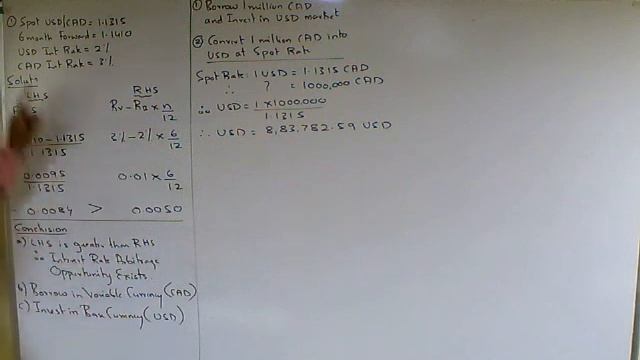 ① Spot USD/CAD = 1.1315
6 month Forward = 1.1410
USD Int Rate = 2%
CAD Int Rate = 3%
LHS
RHS
Rv - RB × n/12
10 - 1.1315
1.1315
3% - 2% × 6/12
0.0095
1.1315
0.01 × 6/12
0.0084 > 0.0050
Conclusion
a) LHS is greater than RHS
∴ Interest Rate Arbitrage
Opportunity Exists
b) Borrow in Variable Currency (CAD)
c) Invest in Base Currency (USD)
① Borrow 1 million CAD
and Invest in USD market
② Convert 1 million CAD into
USD at Spot Rate
Spot Rate: 1 USD = 1.1315 CAD
∴ ? = 1000,000 CAD
∴ USD = 1 × 1000.000
1.1315
∴ USD = 8,83,782.59 USD